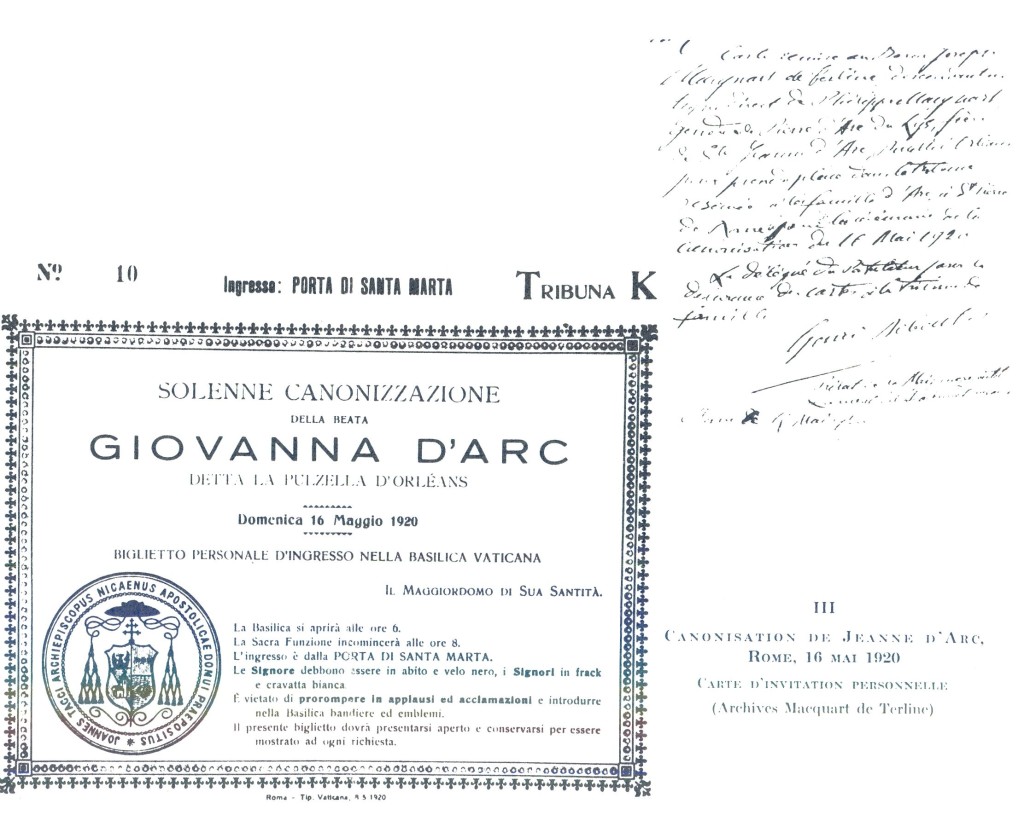 Nº 10 Ingresso: PORTA DI SANTA MARTA TRIBUNA K
SOLENNE CANONIZZAZIONE
DELLA BEATA
GIOVANNA D'ARC
DETTA LA PULZELLA D'ORLÉANS
Domenica 16 Maggio 1920
BIGLIETTO PERSONALE D'INGRESSO NELLA BASILICA VATICANA
IL MAGGIORDOMO DI SUA SANTITÀ.
La Basilica si aprirà alle ore 6.
La Sacra Funzione incomincerà alle ore 8.
L'ingresso è dalla PORTA DI SANTA MARTA.
Le Signore debbono essere in abito e velo nero, i Signori in frack
e cravatta bianca
È vietato di prorompere in applausi ed acclamazioni e introdurre
nella Basilica bandiere ed emblemi.
Il presente biglietto dovrà presentarsi aperto e conservarsi per essere
mostrato ad ogni richiesta.
JOANNES TACCI ARCHIEPISCOPUS NICAENUS APOSTOLICAE DOMUI PRAEPOSITUS
Roma - Tip. Vaticana, 1920
Carte remise au Baron Joseph
Macquart de Terline descendant
direct de Philippe Macquart
gendre de Pierre d'Arc du Lys, frère
de Ste Jeanne d'Arc,
pour prendre place dans la tribune
réservée à la famille d'Arc, à St Pierre
de Rome pour la cérémonie de la
Canonisation du 16 Mai 1920
Le délégué du postulateur pour la
des cartes à la tribune de
famille
Mai
III
CANONISATION DE JEANNE D'ARC,
ROME, 16 MAI 1920
CARTE D'INVITATION PERSONNELLE
(Archives Macquart de Terline)